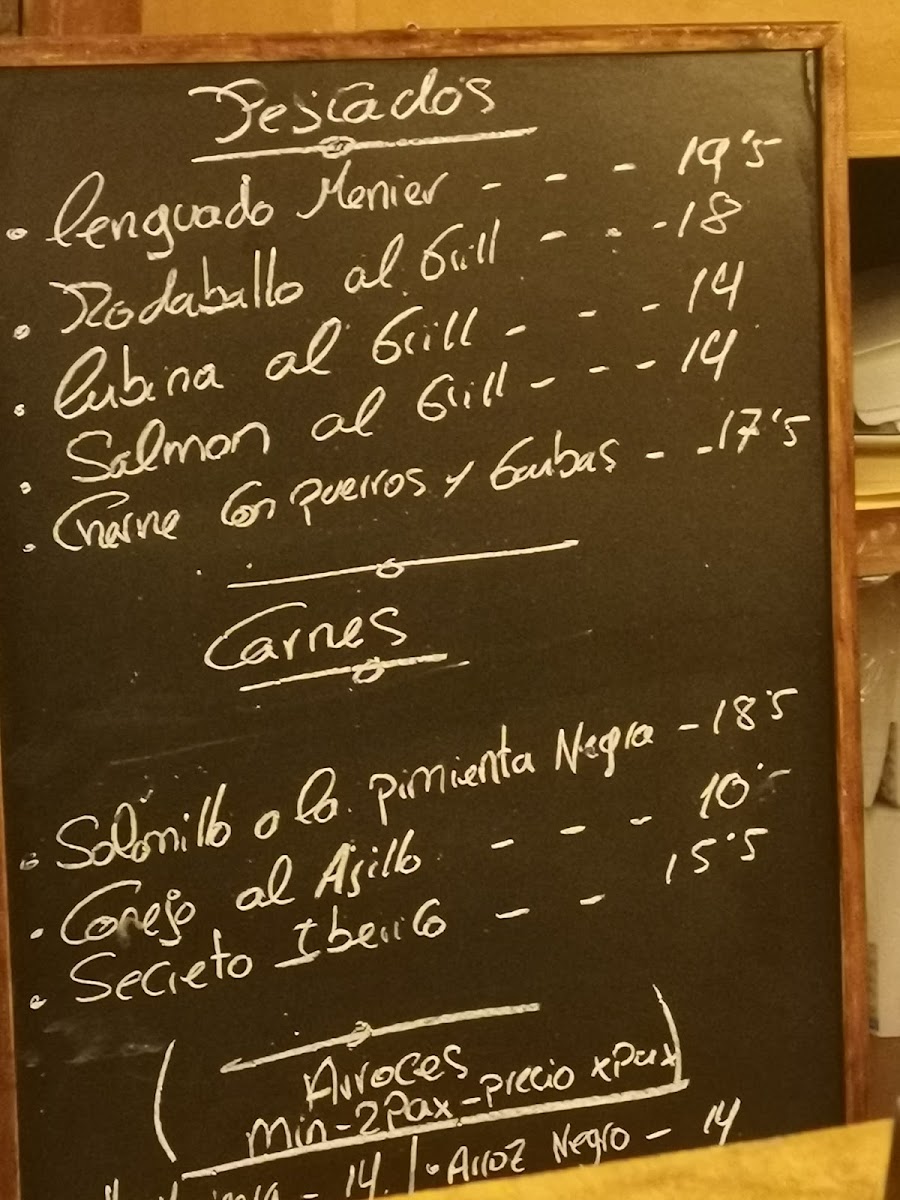 Pescados
• lenguado Menier - - - 19'5
• Rodaballo al Grill - - - 18
• lubina al Grill - - - 14
• Salmon al Grill - - - 14
• Cherne Con puerros y Gambas - - 17'5
Carnes
• Solomillo a la pimienta Negra - 18'5
• Conejo al Ajillo - - - 10'-
• Secreto Iberico - - 15'5
Arroces
Min-2Pax-precio xPax
- 14 | • Arroz Negro - 14